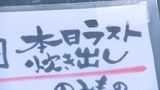 本日ラスト
炊き出し
のみもの